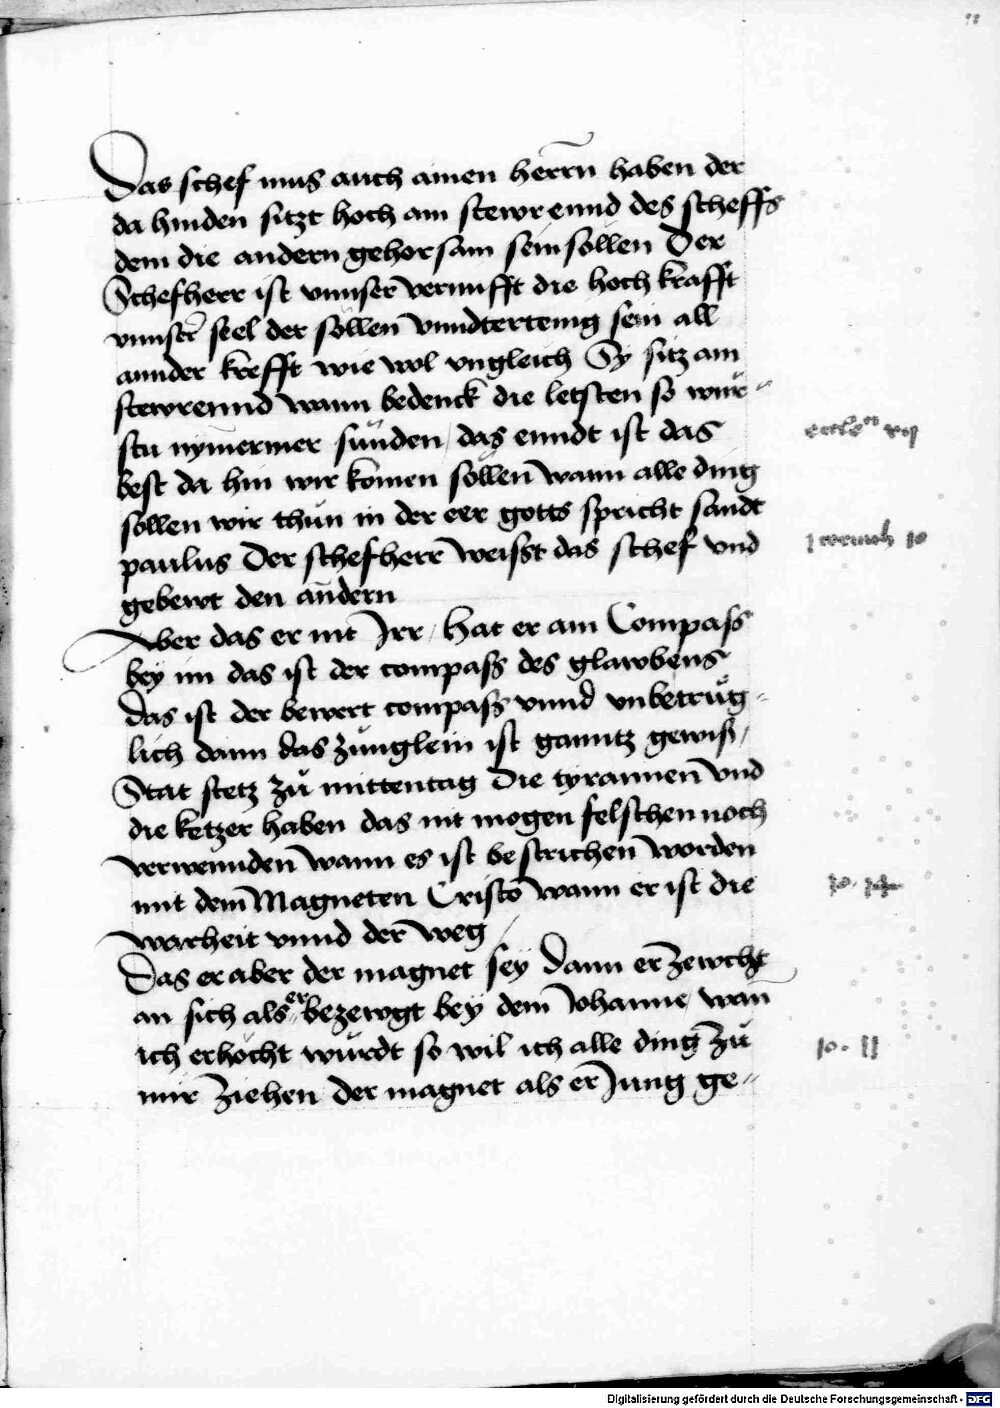 Das schef mus auch ainen herrn haben der
da hinden sitzt hoch am stewrennd des scheffs
dem die andern gehorsam sein söllen Der
Schefherr ist vnnser vernufft die hoch krafft
vnnser seel der söllen vnndertenig sein all
annder krefft wie wol vngleich Sy sitz am
stewrennd wann bedenck die letsten so wür-
stu nymermer sünden / das enndt ist das
best da hin wir komen sollen wann alle ding
sollen wir thun in der eer gotts spricht sandt
paulus Der schefherr weisst das schef vnd
gebewt den andern
Aber das er nit Irr / hat er am Compass
bey im das ist der compass des glawbens
das ist der bewert compass vnnd vnbetrüg-
lich dann das zünglein ist ganntz gewiss /
Stat stetz zů mittentag Die tyrannen vnd
die ketzer haben das nit mogen felschen noch
verwennden wann es ist bestrichen worden
mit dem Magneten Cristo wann er ist die
warheit vnnd der weg /
Das er aber der magnet sey Dann er zewcht
an sich als er bezewgt bey dem Johanne / wan
ich erhöcht würdt so wil ich alle ding zů
mir ziehen der magnet als er Jung ge-
eccle^ci vii
10. 14
Digitalisierung gefördert durch die Deutsche Forschungsgemeinschaft - DFG